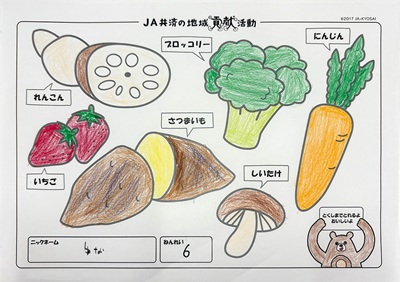 JA共済の地域貢献活動
©2017 JA-KYOSAI
ブロッコリー
にんじん
れんこん
さつまいも
いちご
しいたけ
とくしまでとれるよ
おいしいよ
ニックネーム
ねんれい
6